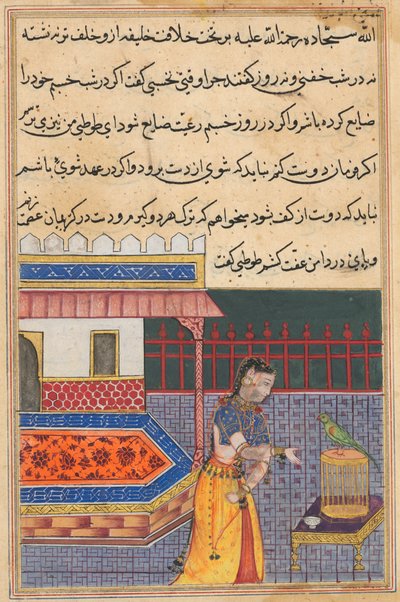 الله سجاده رحمة الله علیه بر تخت خلافت خلیفه ارو خلف تو نه نشسته
نه در شب خفتی و نه روز گفتند چرا وقتی نخسپی گفت اگر در شب خسپم خود را
ضایع کرده باشم و اگر در روز خسپم رعیت ضایع شود ای طوطی من نیز می ترسم
اگر ومان دوست کنم نباید که شوی از دست برود و اگر در عهد شوی باشم
نباید که دوست از کف شود میخواهم که ترک هر دو گیرم و دست در گریبان عفت زنم
و پای در دامن عفت کشم طوطی گفت